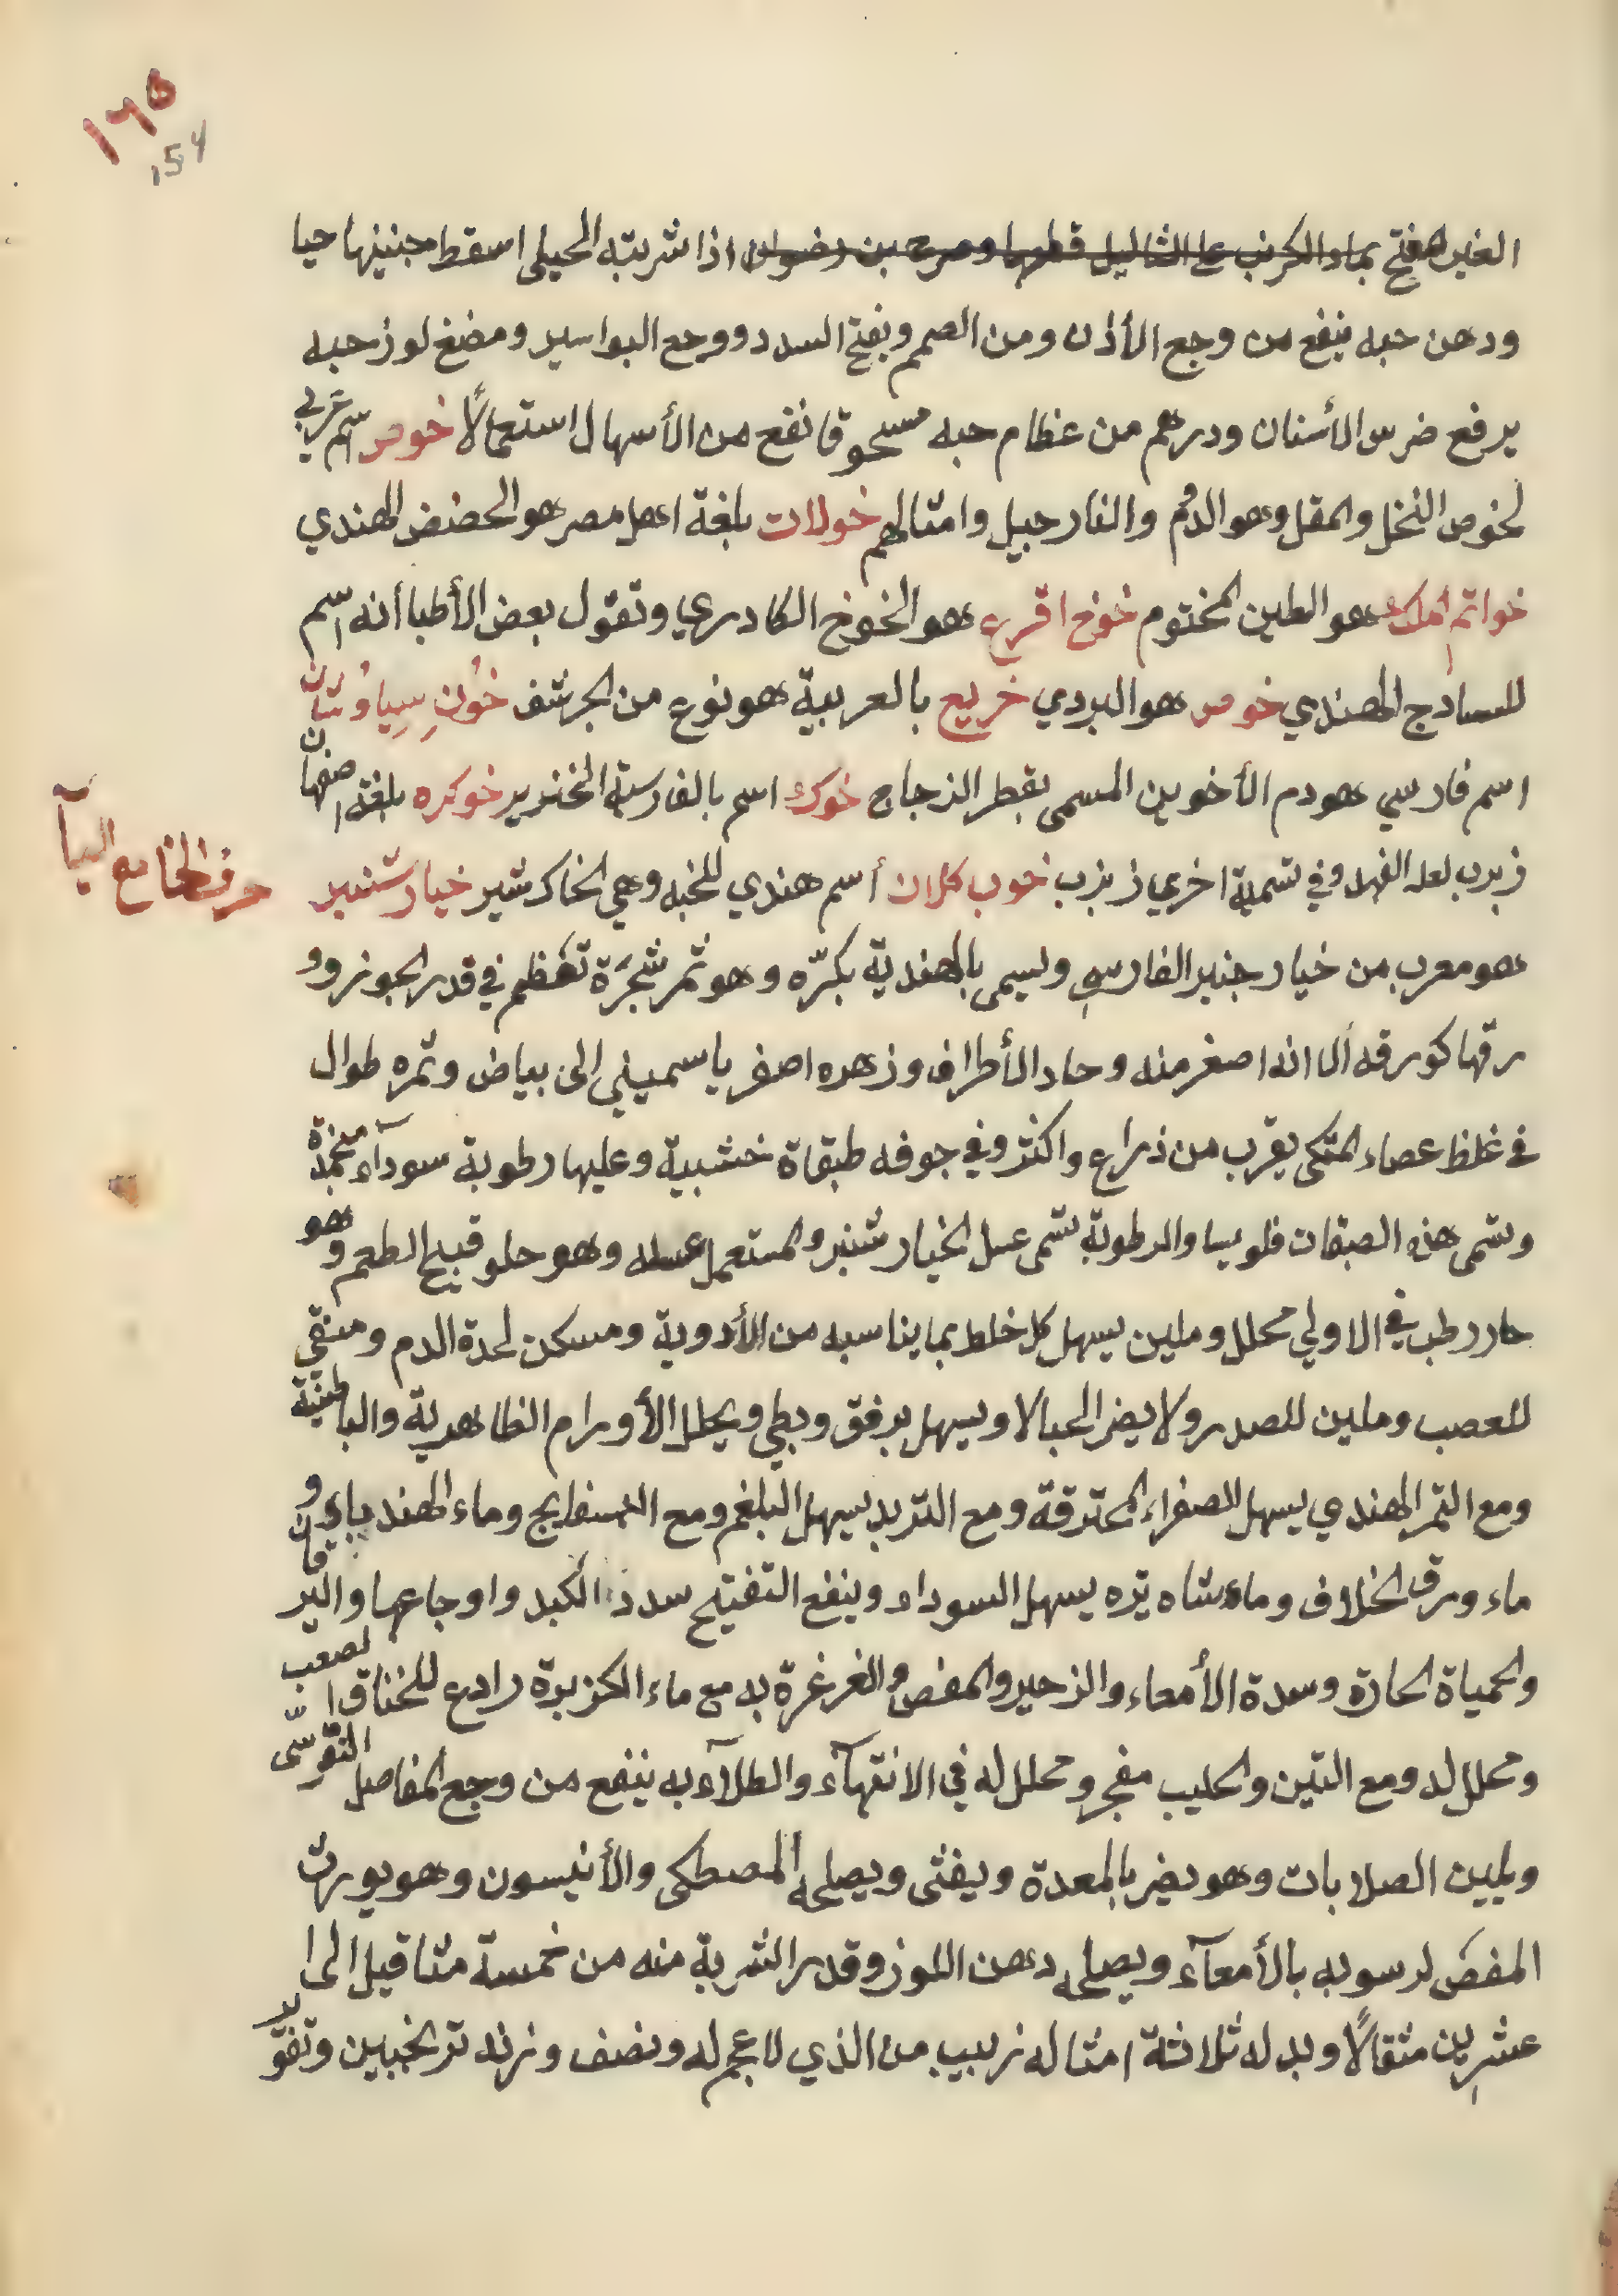 ١٦٥
154
اذا شربته الحبلى اسقط جنينها حيا
ودهن حبه ينفع من وجع الأذن ومن الصمم ويفتح السدد ووجع البواسير ومضغ لوز حبه
يرفع ضرس الأسنان ودرهم من عظام حبه مسحوقا نفع من الأسهال استعمالًا خوص اسم عربي
لخوص النخل والمقل وهو الدُم والنارجيل وامثالهم خولات بلغة اهل مصر هو الحضض الهندي
خواتم الملك هو الطين المختوم خوخ اقرع هو الخوخ الكادرهي وتقول بعض الأطبا أنه اسم
للسادج الهندي خوص هو البردي خريع بالعربية هو نوع من الجرشف خوُنِ سِياوُشان
اسم فارسي هو دم الأخوين المسمى بقطر الزجاج خوك اسم بالفارسية الخنزير خوكره بلغة اصفهان
زبرب لعله الفهد وفي تسمية اخري زبزب خوب كلان أسم هندي للخبه وهي الخاكشير خيارشنبر
حرف الخا مع اليآ
هو معرب من خيار جنبر الفارسي ويسمى بالهندية بكرّه وهو ثمر شجَرَة تعَظم في قدر الجوز وو
رقها كورقه الا انه اصغر منه وحاد الأطراف وزهره اصفر ياسميني الى بياض وثمره طوال
في غلظ عصاء المتكى يقرب من ذراع واكثر وفي جوفه طبقاة خشبية وعليها رطوبة سودآء متجمدة
وتسمى هذه الصبقات فلوسا والرطوبة تسمى عسل الخيار شنبر والمستعمل عسله وهو حلو قبيح الطعم وهو
حار رطب في الاولي محلل وملين يسهل كل خلط بما يناسبه من الأدوية ومسكن لحدة الدم ومنقي
للعصب وملين للصدر ولا يضر الحبالا ويسهل برفق وبطي ويحلل الأورام الظاهرية والباطنية
ومع التمر الهندي يسهل الصفراء المحترقة ومع التربد يسهل البلغم ومع البسفايج وماء الهندباء و
ماء ورق الخلاف وماء شاه تره يسهل السوداء وينفع التفتيح سدد الكبد واوجاعها واليرقان
والحمياة الحارة وسدة الأمعاء والزحير والمغص والغرغرة به مع ماء الكزبرة رادع للخناق الصعب
ومحلل له ومع التين والحليب مفجر ومحلل له في الانتهآء والطلآء به ينفع من وجع المفاصل النقرسى
ويلين الصلابات وهو يضر بالمعدة ويغثى ويصلحه المصطكى والأنيسون وهو يورث
المغص لرسوبه بالأمعآء ويصلحه دهن اللوز وقدر الشربة منه من خمسة مثاقيل الى
عشرين مثقالًا وبدله ثلاثة امثاله زبيب من الذي لا عجم له ونصف وزنه ترنجبين وتفو